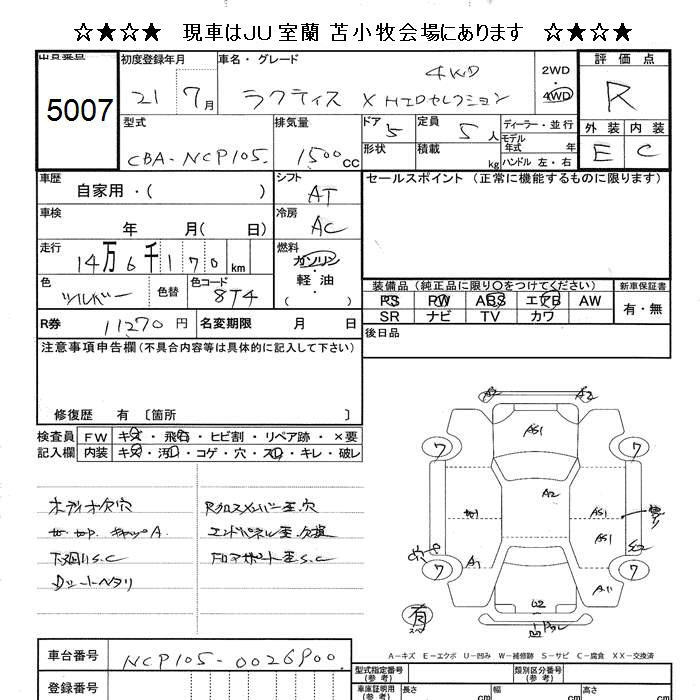 ☆★☆★ 現車はJU室蘭 苫小牧会場にあります ☆★☆★
出品番号 初度登録年月 車名・グレード 評価点
5007 21 7月 ラクティス X HIDセレクション 4WD 2WD 4WD R
型式 排気量 ドア 定員 ディーラー・並行 外装 内装
CBA-NCP105 1500cc 5 5人 モデル年式 年 E C
形状 積載 kg ハンドル 左・右
車歴 シフト セールスポイント (正常に機能するものに限ります)
自家用・( ) AT
車検 冷房
年 月( 日) AC
走行 燃料
14万6千170km ガソリン・軽油
色 色替 色コード 装備品 (純正品に限り○をつけてください) 新車保証書
シルバー 8T4 PS PW ABS エアB AW 有・無
SR ナビ TV カワ
R券 11270円 名変期限 月 日
後日品
注意事項申告欄(不具合内容等は具体的に記入して下さい)
修復歴 有 〔箇所 〕
検査員記入欄 FW キズ・飛石・ヒビ割・リペア跡・×要
内装 キズ・汚レ・コゲ・穴・スレ・キレ・破レ
A2
AS1
7 7
A2
AS1
AS1
A1 A11
7 7
U2
有
下廻りS.C
A-キズ E-エクボ U-凹み W-補修跡 S-サビ C-腐食 XX-交換済
車台番号 NCP105-0026900
登録番号
型式指定番号(参考) 類別区分番号(参考)
車庫証明用(参考) 長さ cm 幅 cm 高さ cm